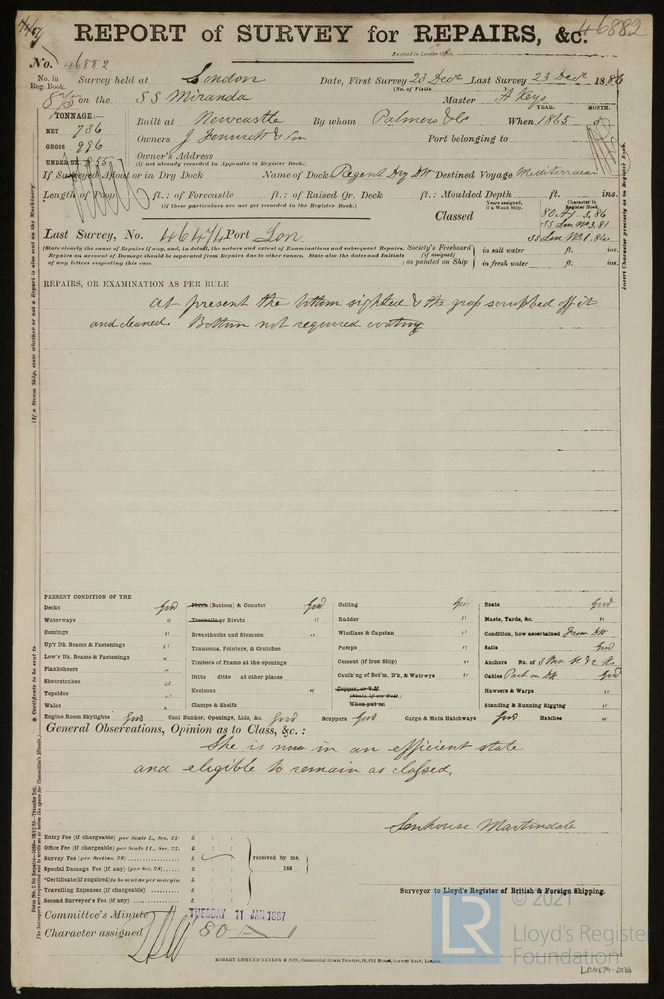 REPORT of SURVEY for REPAIRS, &c. 46882
Received in London Office,
No. 46882
No. in Reg. Book. Survey held at London Date, First Survey 23 Decr Last Survey 23 Decr 1886
(No. of Visits
875 on the SS Miranda Master Keys
TONNAGE:— YEAR. MONTH.
NET 736 Built at Newcastle By whom Palmers & Co When 1865 5
GROSS 996 Owners J & Son Port belonging to
UNDER DK. 855 Owner's Address
(If not already recorded in Appendix to Register Book.)
If Surveyed Afloat or in Dry Dock Name of Dock Regent Dry Dk Destined Voyage Mediterranean
Length of Poop ft.: of Forecastle ft.: of Raised Qr. Deck ft.: Moulded Depth ft. ins.
(If these particulars are not yet recorded in the Register Book.)
Years assigned, if a Wood Ship. Character in Register Book.
Classed 80 A1 3,86
SS Lon No 3,81
SS Lon No 1,86
Last Survey, No. 46474 Port Lon
(State clearly the cause of Repairs if any, and, in detail, the nature and extent of Examinations and subsequent Repairs. Society's Freeboard (if assigned) in salt water ft. ins.
Repairs on account of Damage should be separated from Repairs due to other causes. State also the dates and Initials as painted on Ship in fresh water ft. ins.
of any letters respecting this case.
REPAIRS, OR EXAMINATION AS PER RULE
At present the bottom sighted & the grass scrubbed off it
and cleaned. Bottom not required coating
PRESENT CONDITION OF THE
Decks Good Plank (Bottom) & Counter Good Ceiling Good Boats Good
Waterways " Treenails or Rivets Rudder " Masts, Yards, &c. "
Comings " Breasthooks and Stemson " Windlass & Capstan " Condition, how ascertained From Dk
Up'r Dk. Beams & Fastenings " Transoms, Pointers, & Crutches Pumps " Sails Good
Low'r Dk. Beams & Fastenings " Timbers of Frame at the openings Cement (if Iron Ship) " Anchors No. of
Planksheers Ditto ditto at other places Caulk'ng of Bot'm, D'k, & Watrwys " Cables Part on Dk Good
Sheerstrakes " Keelsons " Copper, or Y.M. Hawsers & Warps "
Topsides " Clamps & Shelfs (State if on Felt) Standing & Running Rigging "
Wales " When put on
Engine Room Skylights Good Coal Bunker, Openings, Lids, &c. Good Scuppers Good Cargo & Main Hatchways Good Hatches "
General Observations, Opinion as to Class, &c.:
She is now in an efficient state
and eligible to remain as classed.
Senhouse Martindale
Entry Fee (if chargeable) per Scale I., Sec. 27. £ : :
Office Fee (if chargeable) per Scale II., Sec. 27. £ : :
Survey Fee (per Section 28) £ received by me,
Special Damage Fee (if any) (per Sec. 28) £ : : 188
*Certificate (if required) to be sent as per margin £ : :
Travelling Expenses (if chargeable) £ : :
Second Surveyor's Fee (if any) £ : :
Surveyor to Lloyd's Register of British & Foreign Shipping.
Committee's Minute TUESDAY 11 JAN 1887
Character assigned 80 A 1
ROBERT EDMUND TAYLOR & SON, Commercial Steam Printers, 19, Old Street, Goswell Road, London.
(If a Steam Ship, state whether or not a Report is also sent on the Machinery)
Insert Character precisely as in Register Book.
* Certificate to be sent to
© 2021
LR Lloyd's Register Foundation
LON679-0134